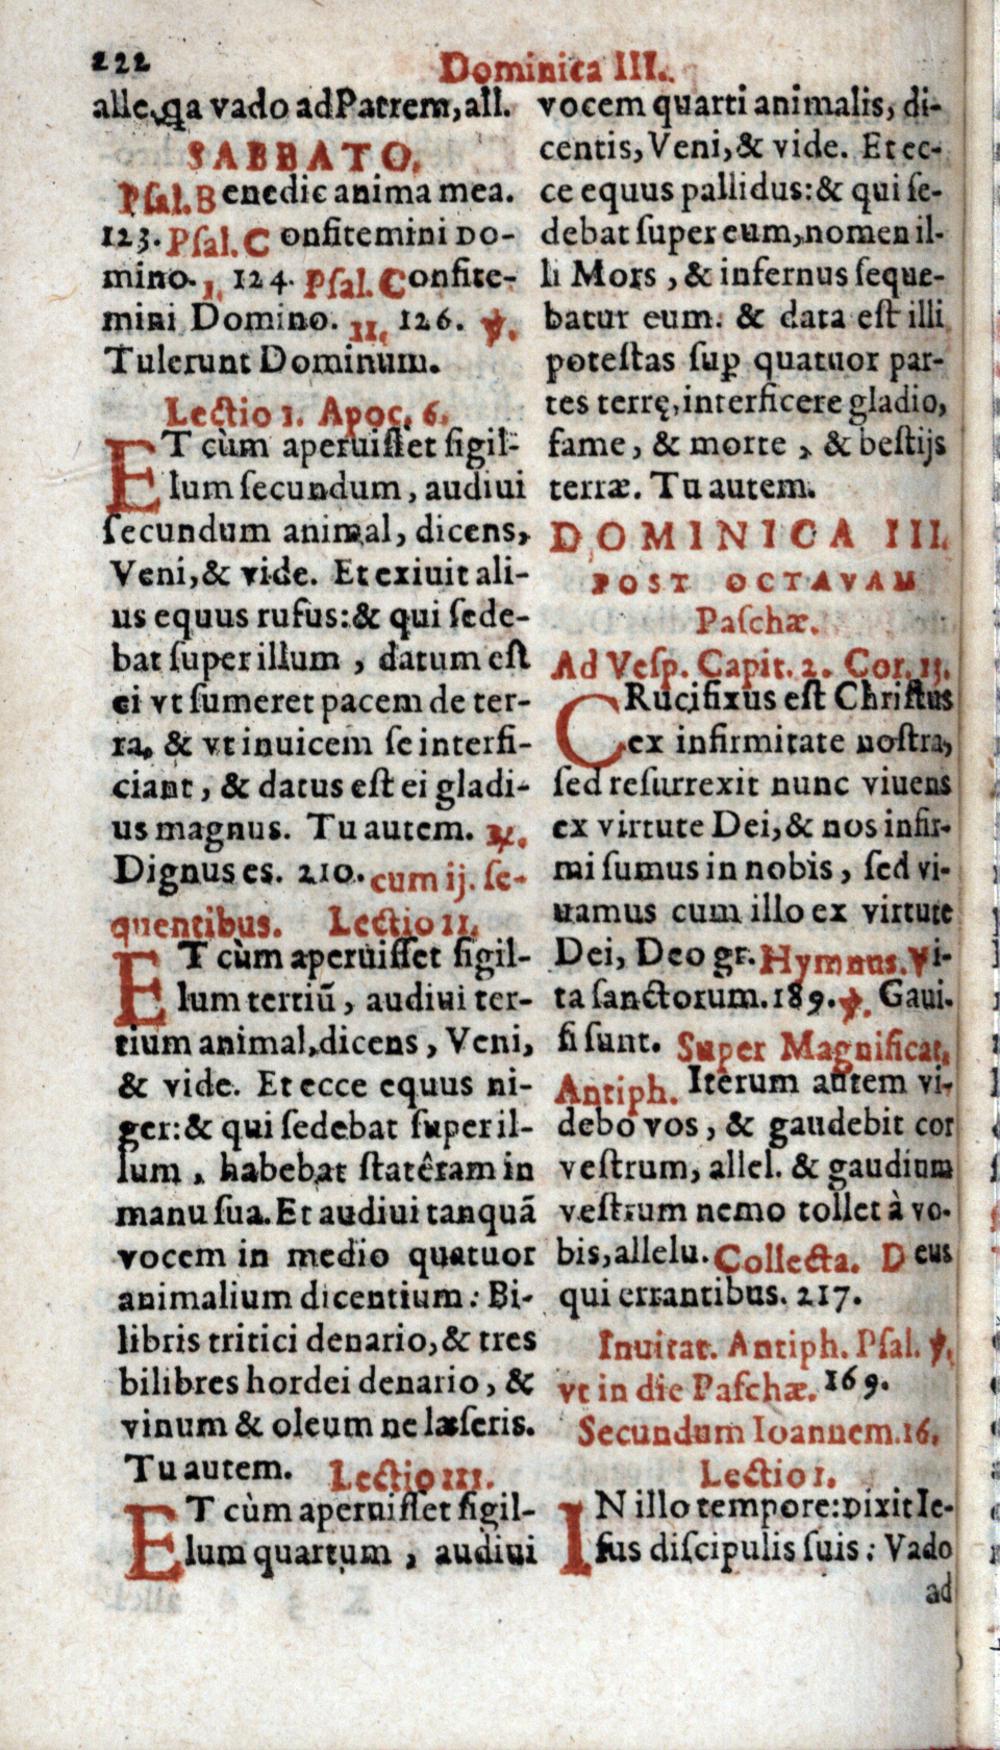 222
Dominica III.
alle, qa vado ad Patrem, all.
SABBATO.
Psal. Benedic anima mea.
123. Psal. Confitemini Do-
mino. I, 124. Psal. Confite-
mini Domino. II, 126. ℣.
Tulerunt Dominum.
Lectio I. Apoc. 6.
ET cùm aperuisset sigil-
lum secundum, audiui
secundum animal, dicens,
Veni, & vide. Et exiuit ali-
us equus rufus: & qui sede-
bat super illum, datum est
ei vt sumeret pacem de ter-
ra, & vt inuicem se interfi-
ciant, & datus est ei gladi-
us magnus. Tu autem. ℟.
Dignus es. 210. cum ij. se-
quentibus. Lectio II.
ET cùm aperuisset sigil-
lum tertiũ, audiui ter-
tium animal, dicens, Veni,
& vide. Et ecce equus ni-
ger: & qui sedebat super il-
lum, habebat statêram in
manu sua. Et audiui tanquã
vocem in medio quatuor
animalium dicentium: Bi-
libris tritici denario, & tres
bilibres hordei denario, &
vinum & oleum ne læseris.
Tu autem. Lectio III.
ET cùm aperuisset sigil-
lum quartum, audiui
vocem quarti animalis, di-
centis, Veni, & vide. Et ec-
ce equus pallidus: & qui se-
debat super eum, nomen il-
li Mors, & infernus seque-
batur eum. & data est illi
potestas sup̱ quatuor par-
tes terrę, interficere gladio,
fame, & morte, & bestijs
terræ. Tu autem.
DOMINICA III.
POST OCTAVAM
Paschæ.
Ad Vesp. Capit. 2. Cor. 13.
CRucifixus est Christus
ex infirmitate nostra,
sed resurrexit nunc viuens
ex virtute Dei, & nos infir-
mi sumus in nobis, sed vi-
uamus cum illo ex virtute
Dei, Deo gr. Hymnus. Vi-
ta sanctorum. 189. ℣. Gaui-
si sunt. Super Magnificat,
Antiph. Iterum autem vi-
debo vos, & gaudebit cor
vestrum, allel. & gaudium
vestrum nemo tollet à vo-
bis, allelu. Collecta. Deus
qui errantibus. 217.
Inuitat. Antiph. Psal. ℣.
vt in die Paschæ. 169.
Secundum Ioannem. 16.
Lectio I.
IN illo tempore: Dixit Ie-
sus discipulis suis: Vado
ad